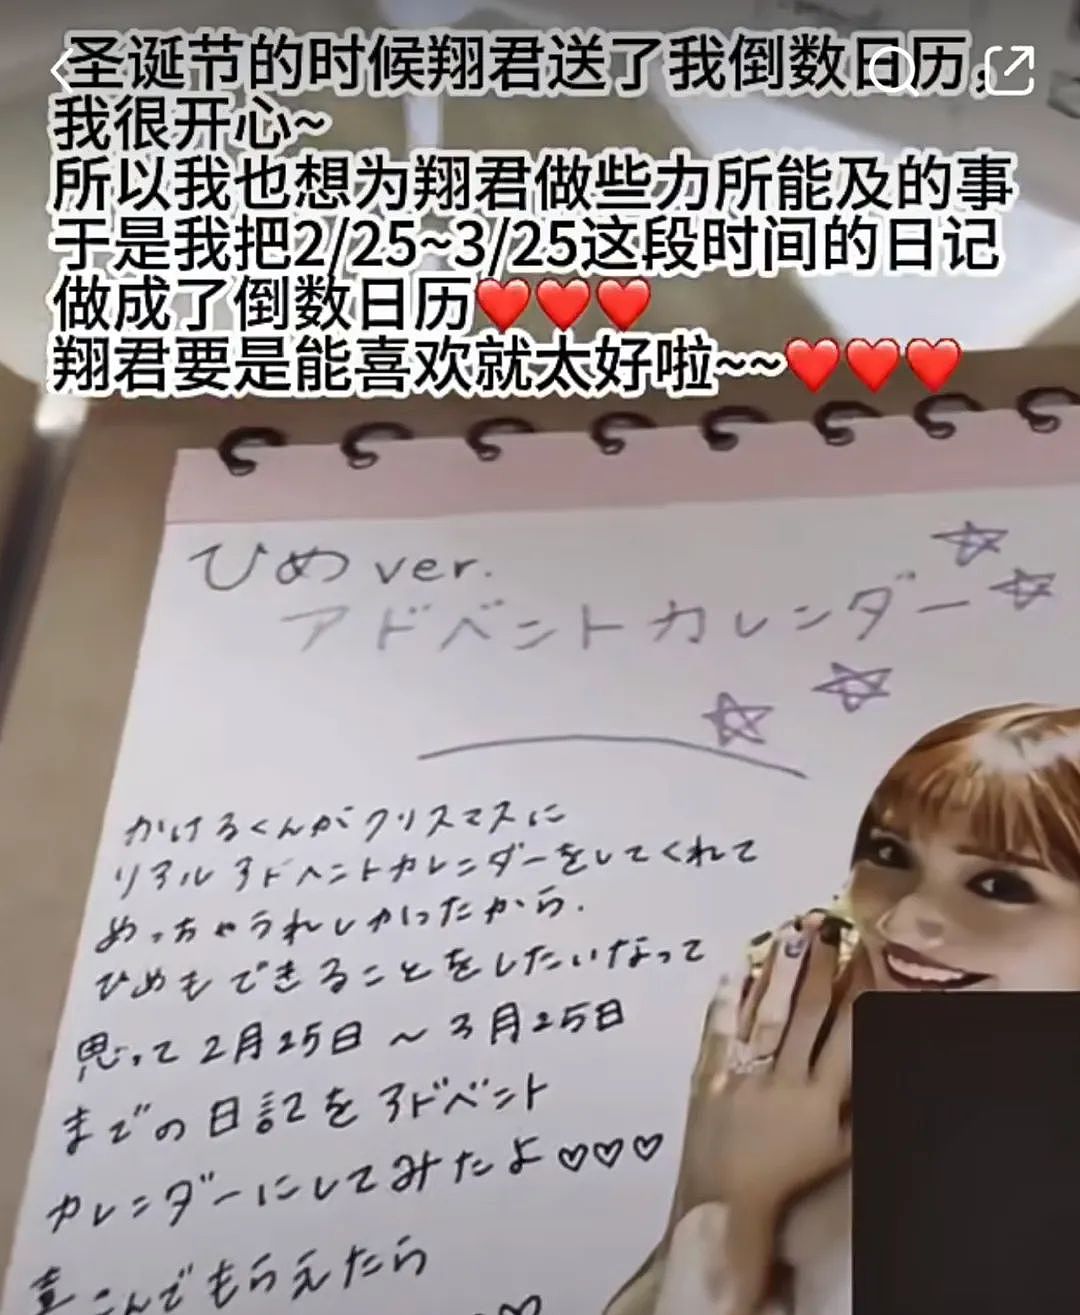 圣诞节的时候翔君送了我倒数日历，
我很开心~
所以我也想为翔君做些力所能及的事
于是我把2/25~3/25这段时间的日记
做成了倒数日历❤️❤️❤️
翔君要是能喜欢就太好啦~~❤️❤️❤️
ひめ ver.
アドベントカレンダー☆☆
☆☆
かけるくんがクリスマスに
リアルアドベントカレンダーをしてくれて
めっちゃうれしかったから.
ひめもできることをしたいなって
思って2月25日～3月25日
までの日記をアドベント
カレンダーにしてみたよ♡♡♡
喜こんでもらえたら